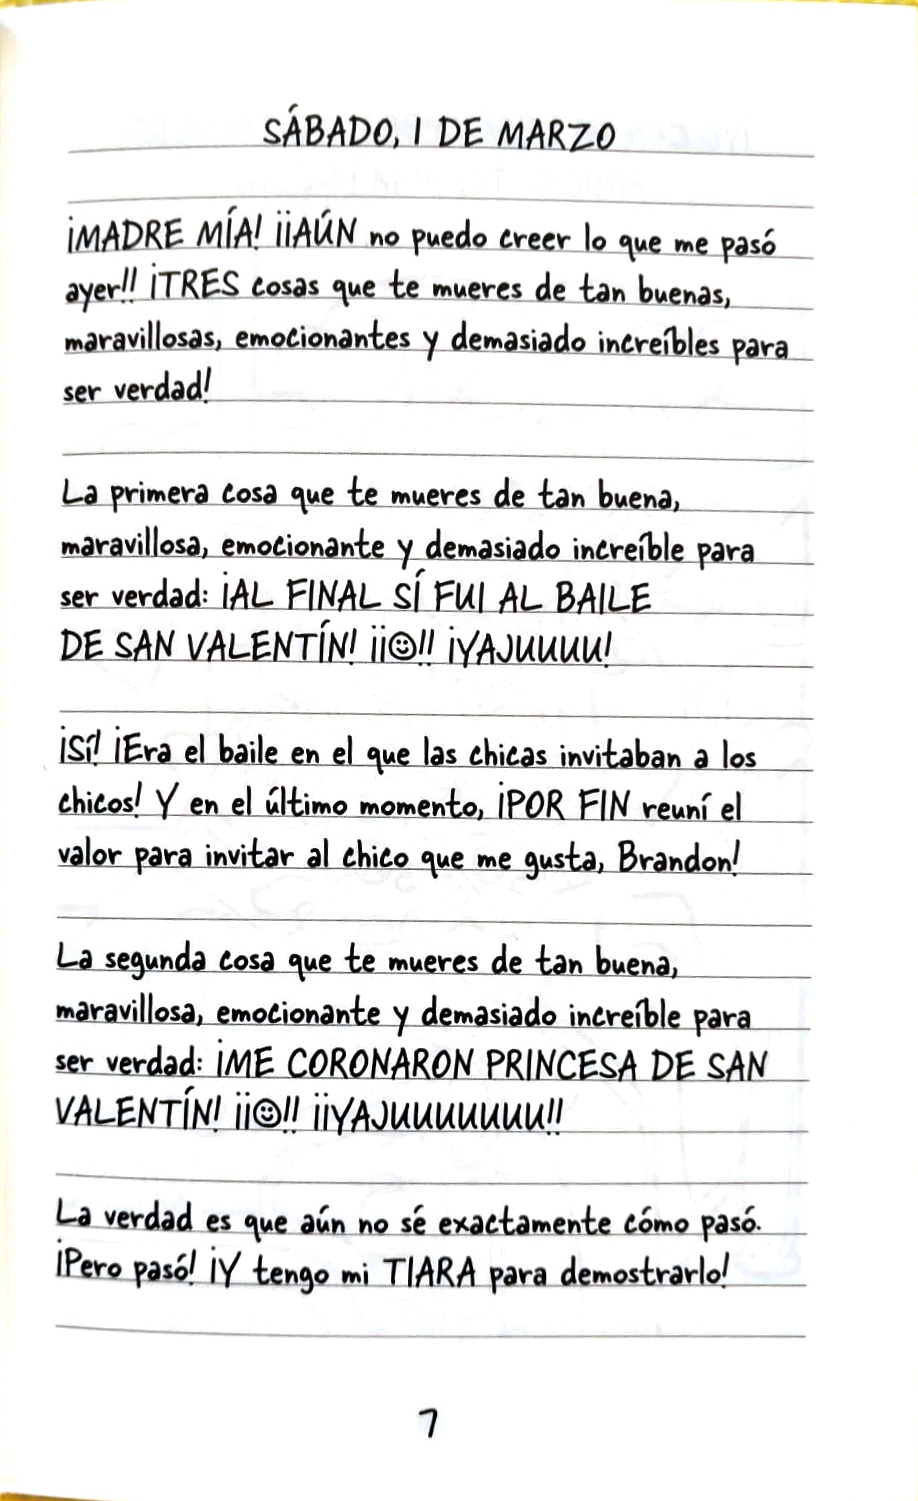 SÁBADO, 1 DE MARZO
¡MADRE MÍA! ¡¡AÚN no puedo creer lo que me pasó
ayer!! ¡TRES cosas que te mueres de tan buenas,
maravillosas, emocionantes y demasiado increíbles para
ser verdad!
La primera cosa que te mueres de tan buena,
maravillosa, emocionante y demasiado increíble para
ser verdad: ¡AL FINAL SÍ FUI AL BAILE
DE SAN VALENTÍN! ¡¡☺!! ¡YAJUUUU!
¡Sí! ¡Era el baile en el que las chicas invitaban a los
chicos! Y en el último momento, ¡POR FIN reuní el
valor para invitar al chico que me gusta, Brandon!
La segunda cosa que te mueres de tan buena,
maravillosa, emocionante y demasiado increíble para
ser verdad: ¡ME CORONARON PRINCESA DE SAN
VALENTÍN! ¡¡☺!! ¡¡YAJUUUUUUU!!
La verdad es que aún no sé exactamente cómo pasó.
¡Pero pasó! ¡Y tengo mi TIARA para demostrarlo!
7